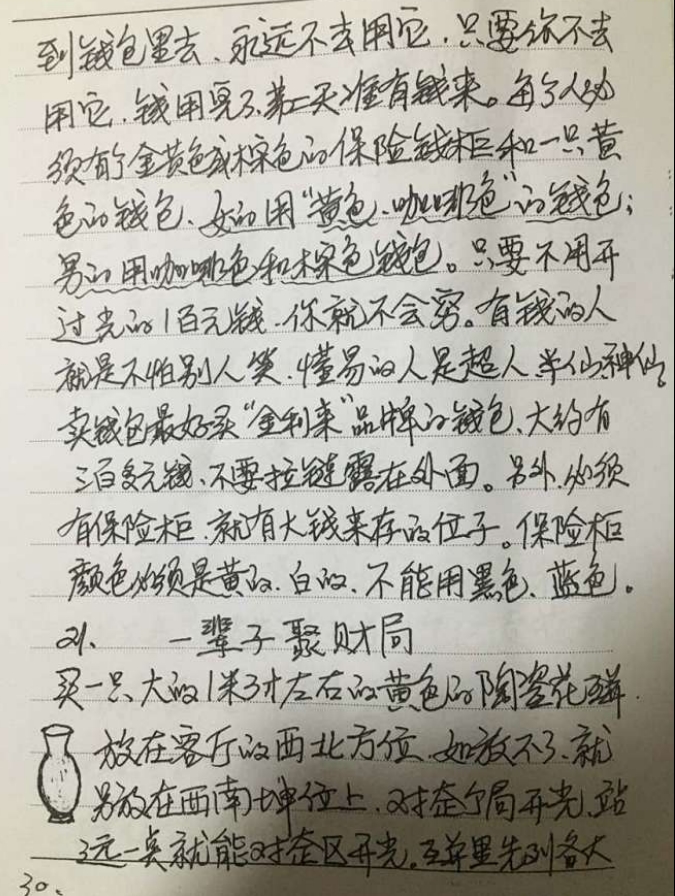 到钱包里去、永远不去用它，只要你不去
用它，钱用完了、第二天准有钱来。每个人必
须有个金黄色或棕色的保险钱柜和一只黄
色的钱包、女的用“黄色、咖啡色”的钱包；
男的用咖啡色和棕色钱包。只要不用开
过光的1百元钱、你就不会穷。有钱的人
就是不怕别人笑、懂易的人是超人、半仙、神仙。
卖钱包最好买“金利来”品牌的钱包、大约有
三百多元钱、不要拉链露在外面。另外、必须
有保险柜、就有大钱来存的位子。保险柜
颜色必须是黄的、白的、不能用黑色、蓝色。
21、 一辈子聚财局
买一只大的1米3寸左右的黄色的陶瓷花瓶、
放在客厅的西北方位、如放不了、就
另放在西南坤位上、对整个局开光、站
了远一点就能对整区开光。瓶里先到各大
30、